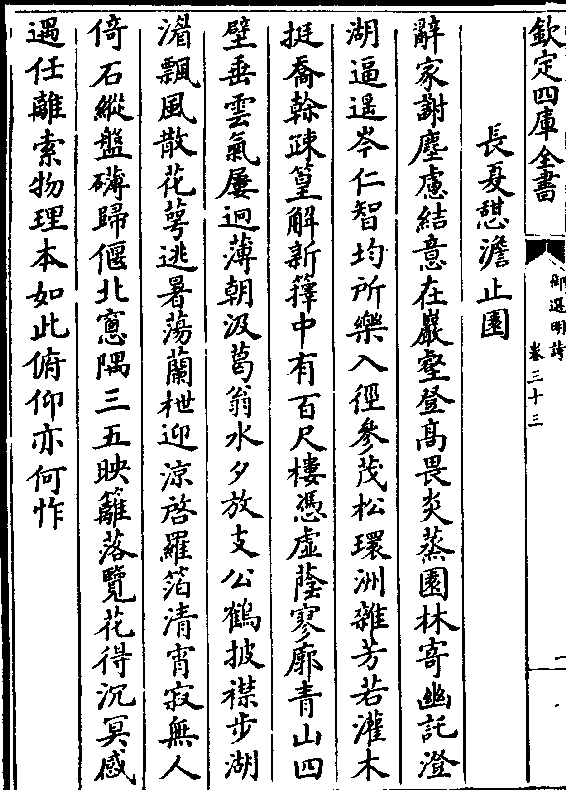 欽定四庫全書
御選明詩
卷三十三
長夏憇澹止園
辭家謝塵慮結意在巖壑登髙畏炎蒸園林寄幽託澄
湖逼遥岑仁智均所樂入徑參茂松環洲雜芳若灌木
挺喬榦疎篁解新籜中有百尺樓憑虛蔭寥廓青山四
壁垂雲氣屢迥薄朝汲葛翁水夕放支公鶴披襟步湖
漘飄風散花萼逃暑蕩蘭枻迎涼啓羅箔清宵寂無人
倚石縱盤礴歸偃北窻隅三五映籬落覽花得沉冥感
遇任離索物理本如此俯仰亦何怍